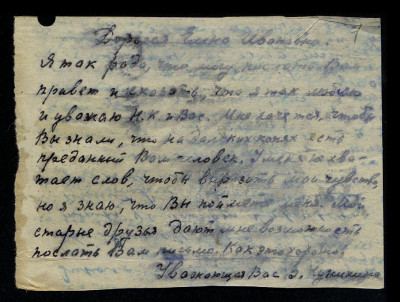 Дорогая Елена Ивановна.
Я так рада, что могу послать Вам
привет и сказать, что я так люблю
и уважаю Н.К. и Вас. Мне хочется, чтобы
Вы знали, что на далеких конях есть
преданный Вам человек. У меня не хва-
тает слов, чтобы выразить мои чувства,
но я знаю, что Вы поймете меня. Мои
старые друзья дают мне возможность
послать Вам письмо. Как это хорошо!
Уважающая Вас З.